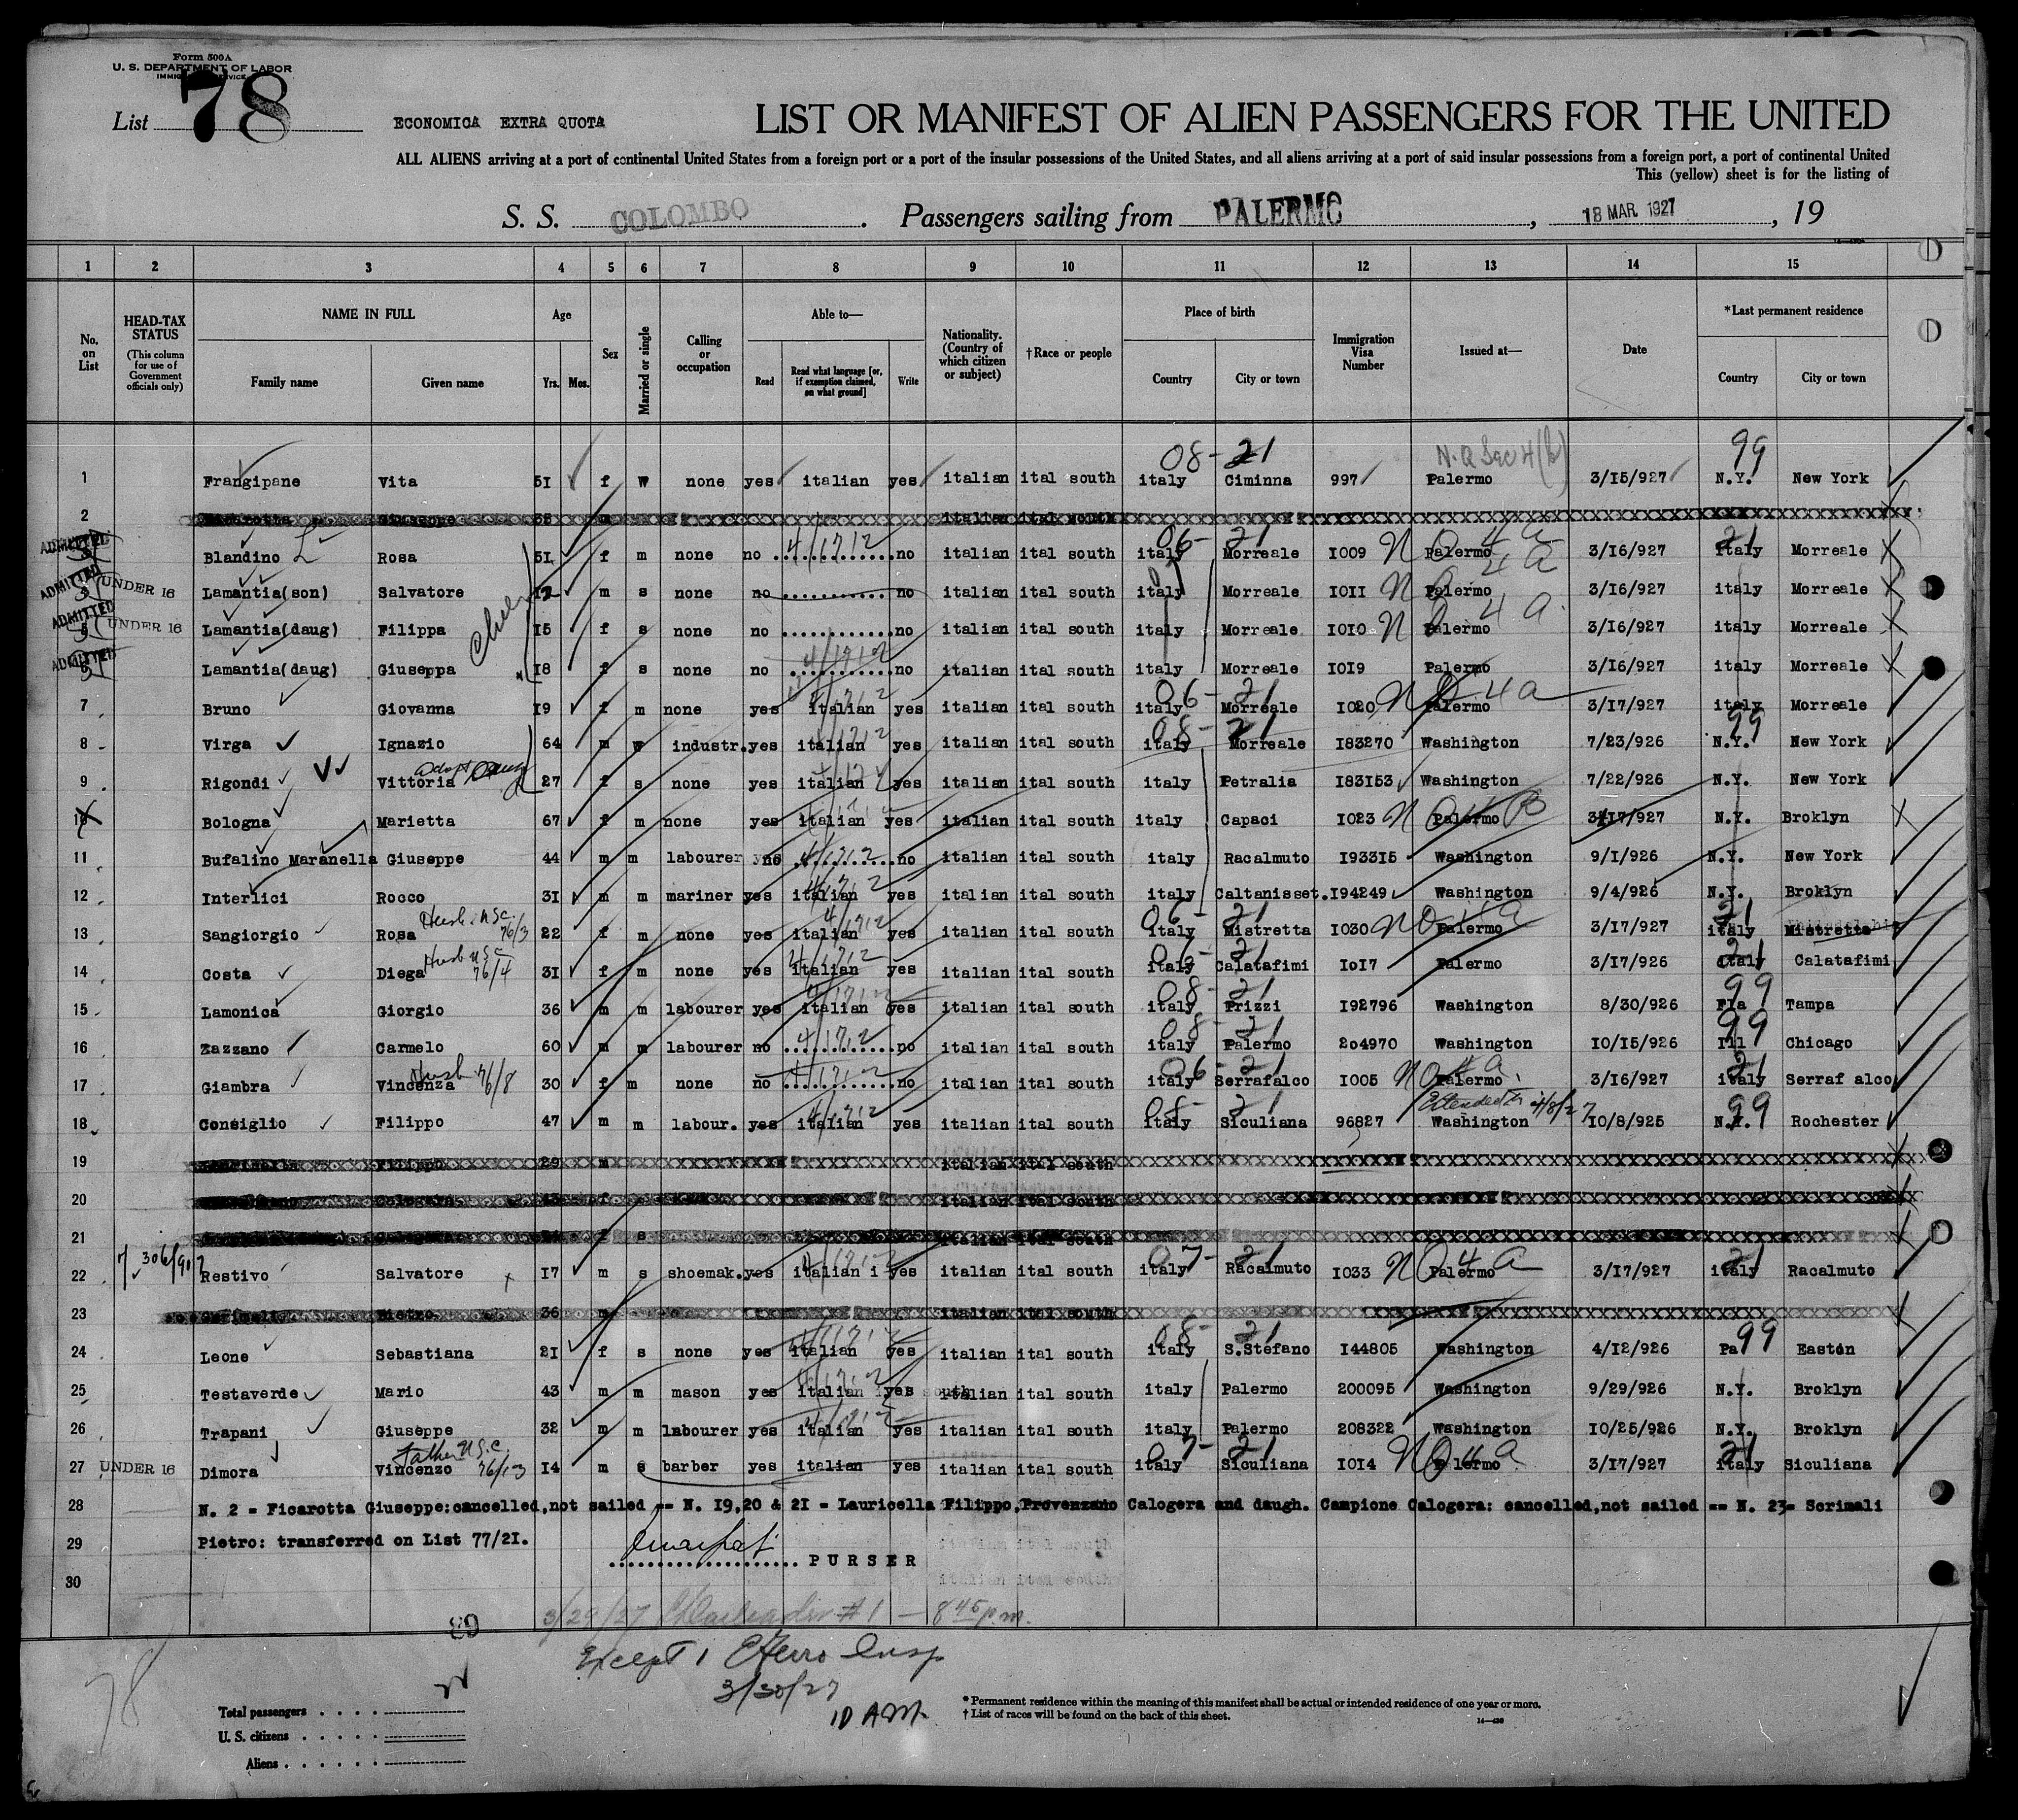 Form 500A
U. S. DEPARTMENT OF LABOR
List 78
ECONOMICA EXTRA QUOTA
LIST OR MANIFEST OF ALIEN PASSENGERS FOR THE UNITED
ALL ALIENS arriving at a port of continental United States from a foreign port or a port of the insular possessions of the United States, and all aliens arriving at a port of said insular possessions from a foreign port, a port of continental United
This (yellow) sheet is for the listing of
S. S. COLOMBO. Passengers sailing from PALERMO, 18 MAR. 1927, 19
1 2 3 4 5 6 7 8 9 10 11 12 13 14 15
No. on List
HEAD-TAX STATUS (This column for use of Government officials only)
NAME IN FULL
Family name Given name
Age
Yrs. Mos.
Sex
Married or single
Calling or occupation
Able to—
Read Read what language [or, if exemption claimed, on what ground] Write
Nationality. (Country of which citizen or subject)
†Race or people
Place of birth
Country City or town
Immigration Visa Number
Issued at—
Date
*Last permanent residence
Country City or town
08-21 99
1 Frangipane Vita 51 f w none yes italian yes italian ital south italy Ciminna 997 Palermo 3/15/927 N.Y. New York
2 italian ital south
ADMITTED 06-21 21
3 Blandino Rosa 51 f m none no no italian ital south italy Morreale 1009 Palermo 3/16/927 italy Morreale
ADMITTED UNDER 16
4 Lamantia(son) Salvatore 12 m s none no no italian ital south italy Morreale 1011 Palermo 3/16/927 italy Morreale
ADMITTED UNDER 16
5 Lamantia(daug) Filippa 15 f s none no no italian ital south italy Morreale 1010 Palermo 3/16/927 italy Morreale
ADMITTED
Lamantia(daug) Giuseppa 18 f s none no no italian ital south italy Morreale 1019 Palermo 3/16/927 italy Morreale
06-21
7 Bruno Giovanna 19 f m none yes italian yes italian ital south italy Morreale 1020 Palermo 3/17/927 italy Morreale
08-21 99
8 Virga Ignazio 64 m w industr. yes italian yes italian ital south italy Morreale 183270 Washington 7/23/926 N.Y. New York
9 Rigondi Vittoria 27 f s none yes italian yes italian ital south italy Petralia 183153 Washington 7/22/926 N.Y. New York
10 Bologna Marietta 67 f m none yes italian yes italian ital south italy Capaci 1023 Palermo 3/17/927 N.Y. Broklyn
11 Bufalino Maranella Giuseppe 44 m m labourer no no italian ital south italy Racalmuto 193315 Washington 9/1/926 N.Y. New York
12 Interlici Rocco 31 m m mariner yes italian yes italian ital south italy Caltanisset. 194249 Washington 9/4/926 N.Y. Broklyn
Husb. USC. 76/3 06-21 21
13 Sangiorgio Rosa 22 f m none yes italian yes italian ital south italy Mistretta 1030 Palermo 3/17/927 italy Mistretta
Husb USC 76/4 06-21 21
14 Costa Diega 31 f m none yes italian yes italian ital south italy Calatafimi 1017 Palermo 3/17/926 italy Calatafimi
08-21 99
15 Lamonica Giorgio 36 m m labourer yes italian yes italian ital south italy Prizzi 192796 Washington 8/30/926 Fla Tampa
08-21 99
16 Zazzano Carmelo 60 m m labourer no no italian ital south italy Palermo 204970 Washington 10/15/926 Ill Chicago
Husb 76/8 06-21 21
17 Giambra Vincenza 30 f m none no no italian ital south italy Serrafalco 1005 Palermo 3/16/927 italy Serraf alco
08-21 Extended to 4/8/27 99
18 Consiglio Filippo 47 m m labour. yes italian yes italian ital south italy Siculiana 96827 Washington 10/8/925 N.Y. Rochester
19 Filippo 29 m italian ital south
20 Calogera f italian ital south
21 f s italian ital south
07-21 21
22 Restivo Salvatore 17 m s shoemak. yes italian i yes italian ital south italy Racalmuto 1033 Palermo 3/17/927 italy Racalmuto
23 Pietro 36 m italian ital south
08-21 99
24 Leone Sebastiana 21 f s none yes italian yes italian ital south italy S.Stefano 144805 Washington 4/12/926 Pa Easton
25 Testaverde Mario 43 m m mason yes italian yes italian ital south italy Palermo 200095 Washington 9/29/926 N.Y. Broklyn
26 Trapani Giuseppe 32 m m labourer yes italian yes italian ital south italy Palermo 208322 Washington 10/25/926 N.Y. Broklyn
Father U.S.C. 76/13 07-21 21
27 UNDER 16 Dimora Vincenzo 14 m s barber yes italian yes italian ital south italy Siculiana 1014 Palermo 3/17/927 italy Siculiana
28 N. 2 = Ficarotta Giuseppe:cancelled,not sailed == N. 19,20 & 21 = Lauricella Filippo,Provenzano Calogera and daugh. Campione Calogera: cancelled,not sailed == N. 23= Scrimali
29 Pietro: transferred on List 77/21.
PURSER
30
3/29/27 #1 — 8 45 p.m.
Except 1 Insp
3/30/27
10 AM.
78
Total passengers
U. S. citizens
Aliens
* Permanent residence within the meaning of this manifest shall be actual or intended residence of one year or more.
† List of races will be found on the back of this sheet.